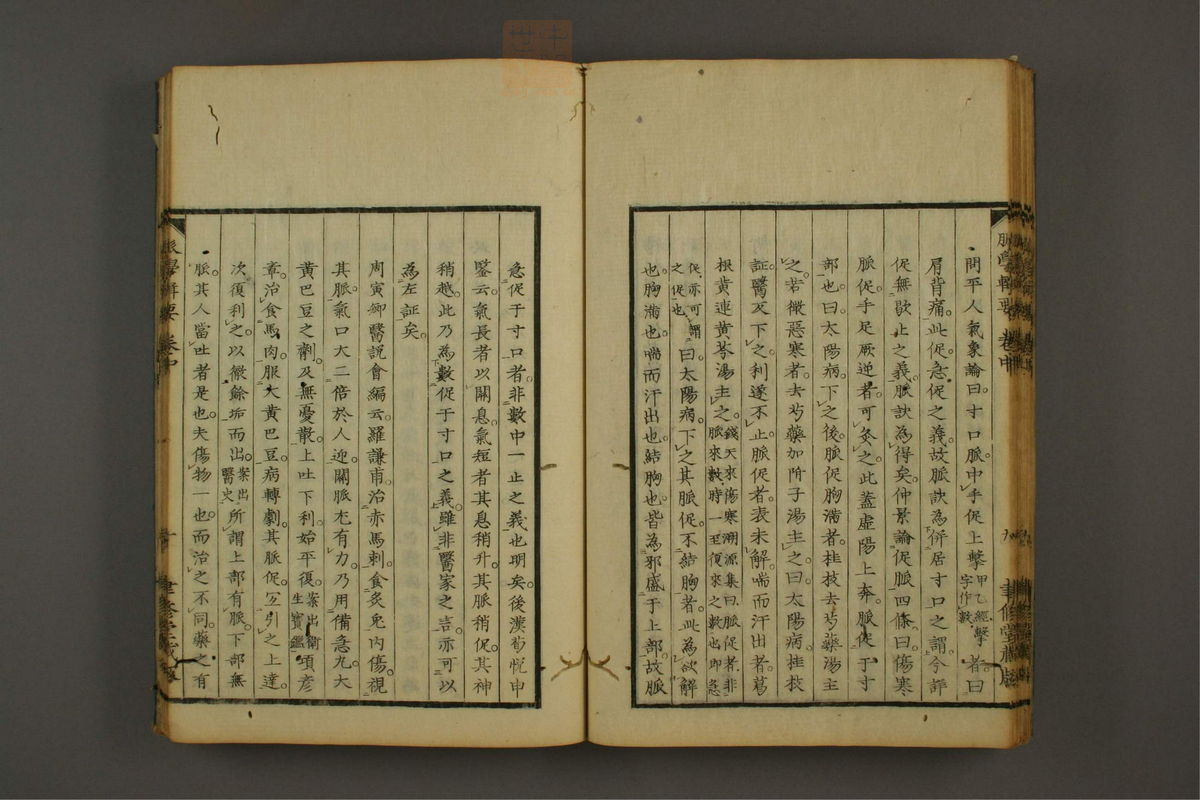 脈學輯要 卷中
九
聿修堂藏版
問平人氣象論曰寸口脈中手促上擊甲乙經擊字作數者曰
肩背痛此促急促之義故脈訣為併居寸口之謂今詳
促無歇止之義脈訣為得矣仲景論促脈四條曰傷寒
脈促手足厥逆者可灸之此蓋虛陽上奔脈促于寸
部也曰太陽病下之後脈促胸滿者桂枝去芍藥湯主
之若微惡寒者去芍藥加附子湯主之曰太陽病桂枝
証醫反下之利遂不止脈促者表未解喘而汗出者葛
根黃連黃芩湯主之錢天來傷寒溯源集曰脈促者非脈來數時一至復來之數也即急
促亦可謂之促也曰太陽病下之其脈促不結胸者此為欲解
也胸滿也喘而汗出也結胸也皆為邪盛于上部故脈
急促于寸口者非數中一止之義也明矣後漢荀悅申
鑒云氣長者以關息氣短者其息稍升其脈稍促其神
稍越此乃為數促于寸口之義雖非醫家之言亦可以
為左証矣
周寅卿醫說會編云羅謙甫治赤馬刺食炙兔內傷視
其脈氣口大二倍於人迎關脈尤有力乃用備急丸大
黃巴豆之劑及無憂散上吐下利始平復案出衛生寶鑑項彥
章治食馬肉服大黃巴豆病轉劇其脈促宜引之上達
次復利之以微餘垢而出案出醫史所謂上部有脈下部無
脈其人當吐者是也夫傷物一也而治之不同藥之有
脈學輯要 卷中
十
聿修堂藏版